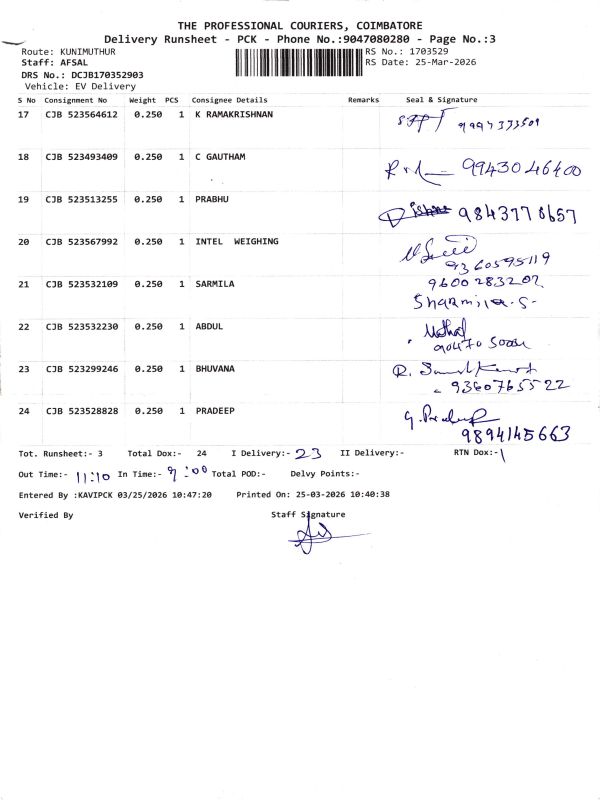 THE PROFESSIONAL COURIERS, COIMBATORE
Delivery Runsheet - PCK - Phone No.:9047080280 - Page No.:3
Route: KUNIMUTHUR RS No.: 1703529
Staff: AFSAL RS Date: 25-Mar-2026
DRS No.: DCJB170352903
Vehicle: EV Delivery
S No Consignment No Weight PCS Consignee Details Remarks Seal & Signature
17 CJB 523564612 0.250 1 K RAMAKRISHNAN
18 CJB 523493409 0.250 1 C GAUTHAM 9943046400
19 CJB 523513255 0.250 1 PRABHU
20 CJB 523567992 0.250 1 INTEL WEIGHING
9360595119
21 CJB 523532109 0.250 1 SARMILA 9600283202
Sharmila.S.
22 CJB 523532230 0.250 1 ABDUL
23 CJB 523299246 0.250 1 BHUVANA
9360765522
24 CJB 523528828 0.250 1 PRADEEP G. Pradeep
9894145663
Tot. Runsheet:- 3 Total Dox:- 24 I Delivery:- 23 II Delivery:- RTN Dox:- 1
Out Time:- 11:10 In Time:- 7:00 Total POD:- Delvy Points:-
Entered By :KAVIPCK 03/25/2026 10:47:20 Printed On: 25-03-2026 10:40:38
Verified By Staff Signature